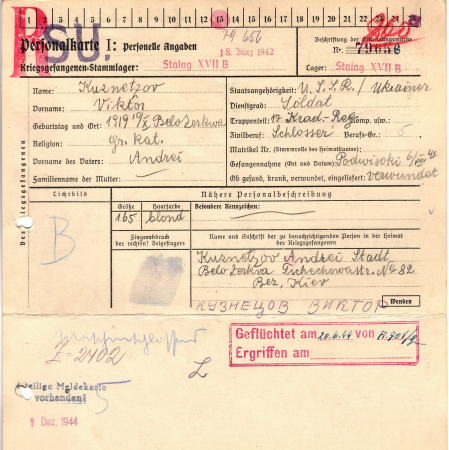 1 2 3 4 5 6 7 8 9 10 11 12 13 14 15 16 17 18 19 20 21 22 23 24 25
R SU.
79 656
Personalkarte I: Personelle Angaben
18. 1942
Beschriftung der Erkennungsmarke
Nr. 79656
Kriegsgefangenen-Stammlager: Stalag XVII B
Lager: Stalag XVII B
Des Kriegsgefangenen
Name: Kusnetzov
Vorname: Viktor
Geburtstag und Ort: 1919 Belo Zerkva
Religion: Gr. kat.
Vorname des Vaters: Andrei
Familienname der Mutter:
Staatsangehörigkeit: U.S.S.R./Ukrainer
Dienstgrad: Soldat
Truppenteil: 17 Krad-Reg. Komp. usw.
Zivilberuf: Schlosser Berufs-Gr.:
Matrikel Nr. (Stammrolle des Heimatstaates):
Gefangennahme (Ort und Datum): Podwisoki
Ob gesund, krank, verwundet, eingeliefert: verwundet
Lichtbild
Nähere Personalbeschreibung
Größe Haarfarbe Besondere Kennzeichen:
165 blond
B
Fingerabdruck
des rechten! Zeigefingers
Name und Anschrift der zu benachrichtigenden Person in der Heimat
des Kriegsgefangenen
Kusnetzov Andrei Stadt
Belo Zerkva Tschechowastr. No 82
Bez. Kiev
КУЗНЕЦОВ ВИКТОР
Wenden
Z-2402
L
Geflüchtet am 20.6.44 von
Ergriffen am
Meldekarte
vorhanden!
1 Dez. 1944